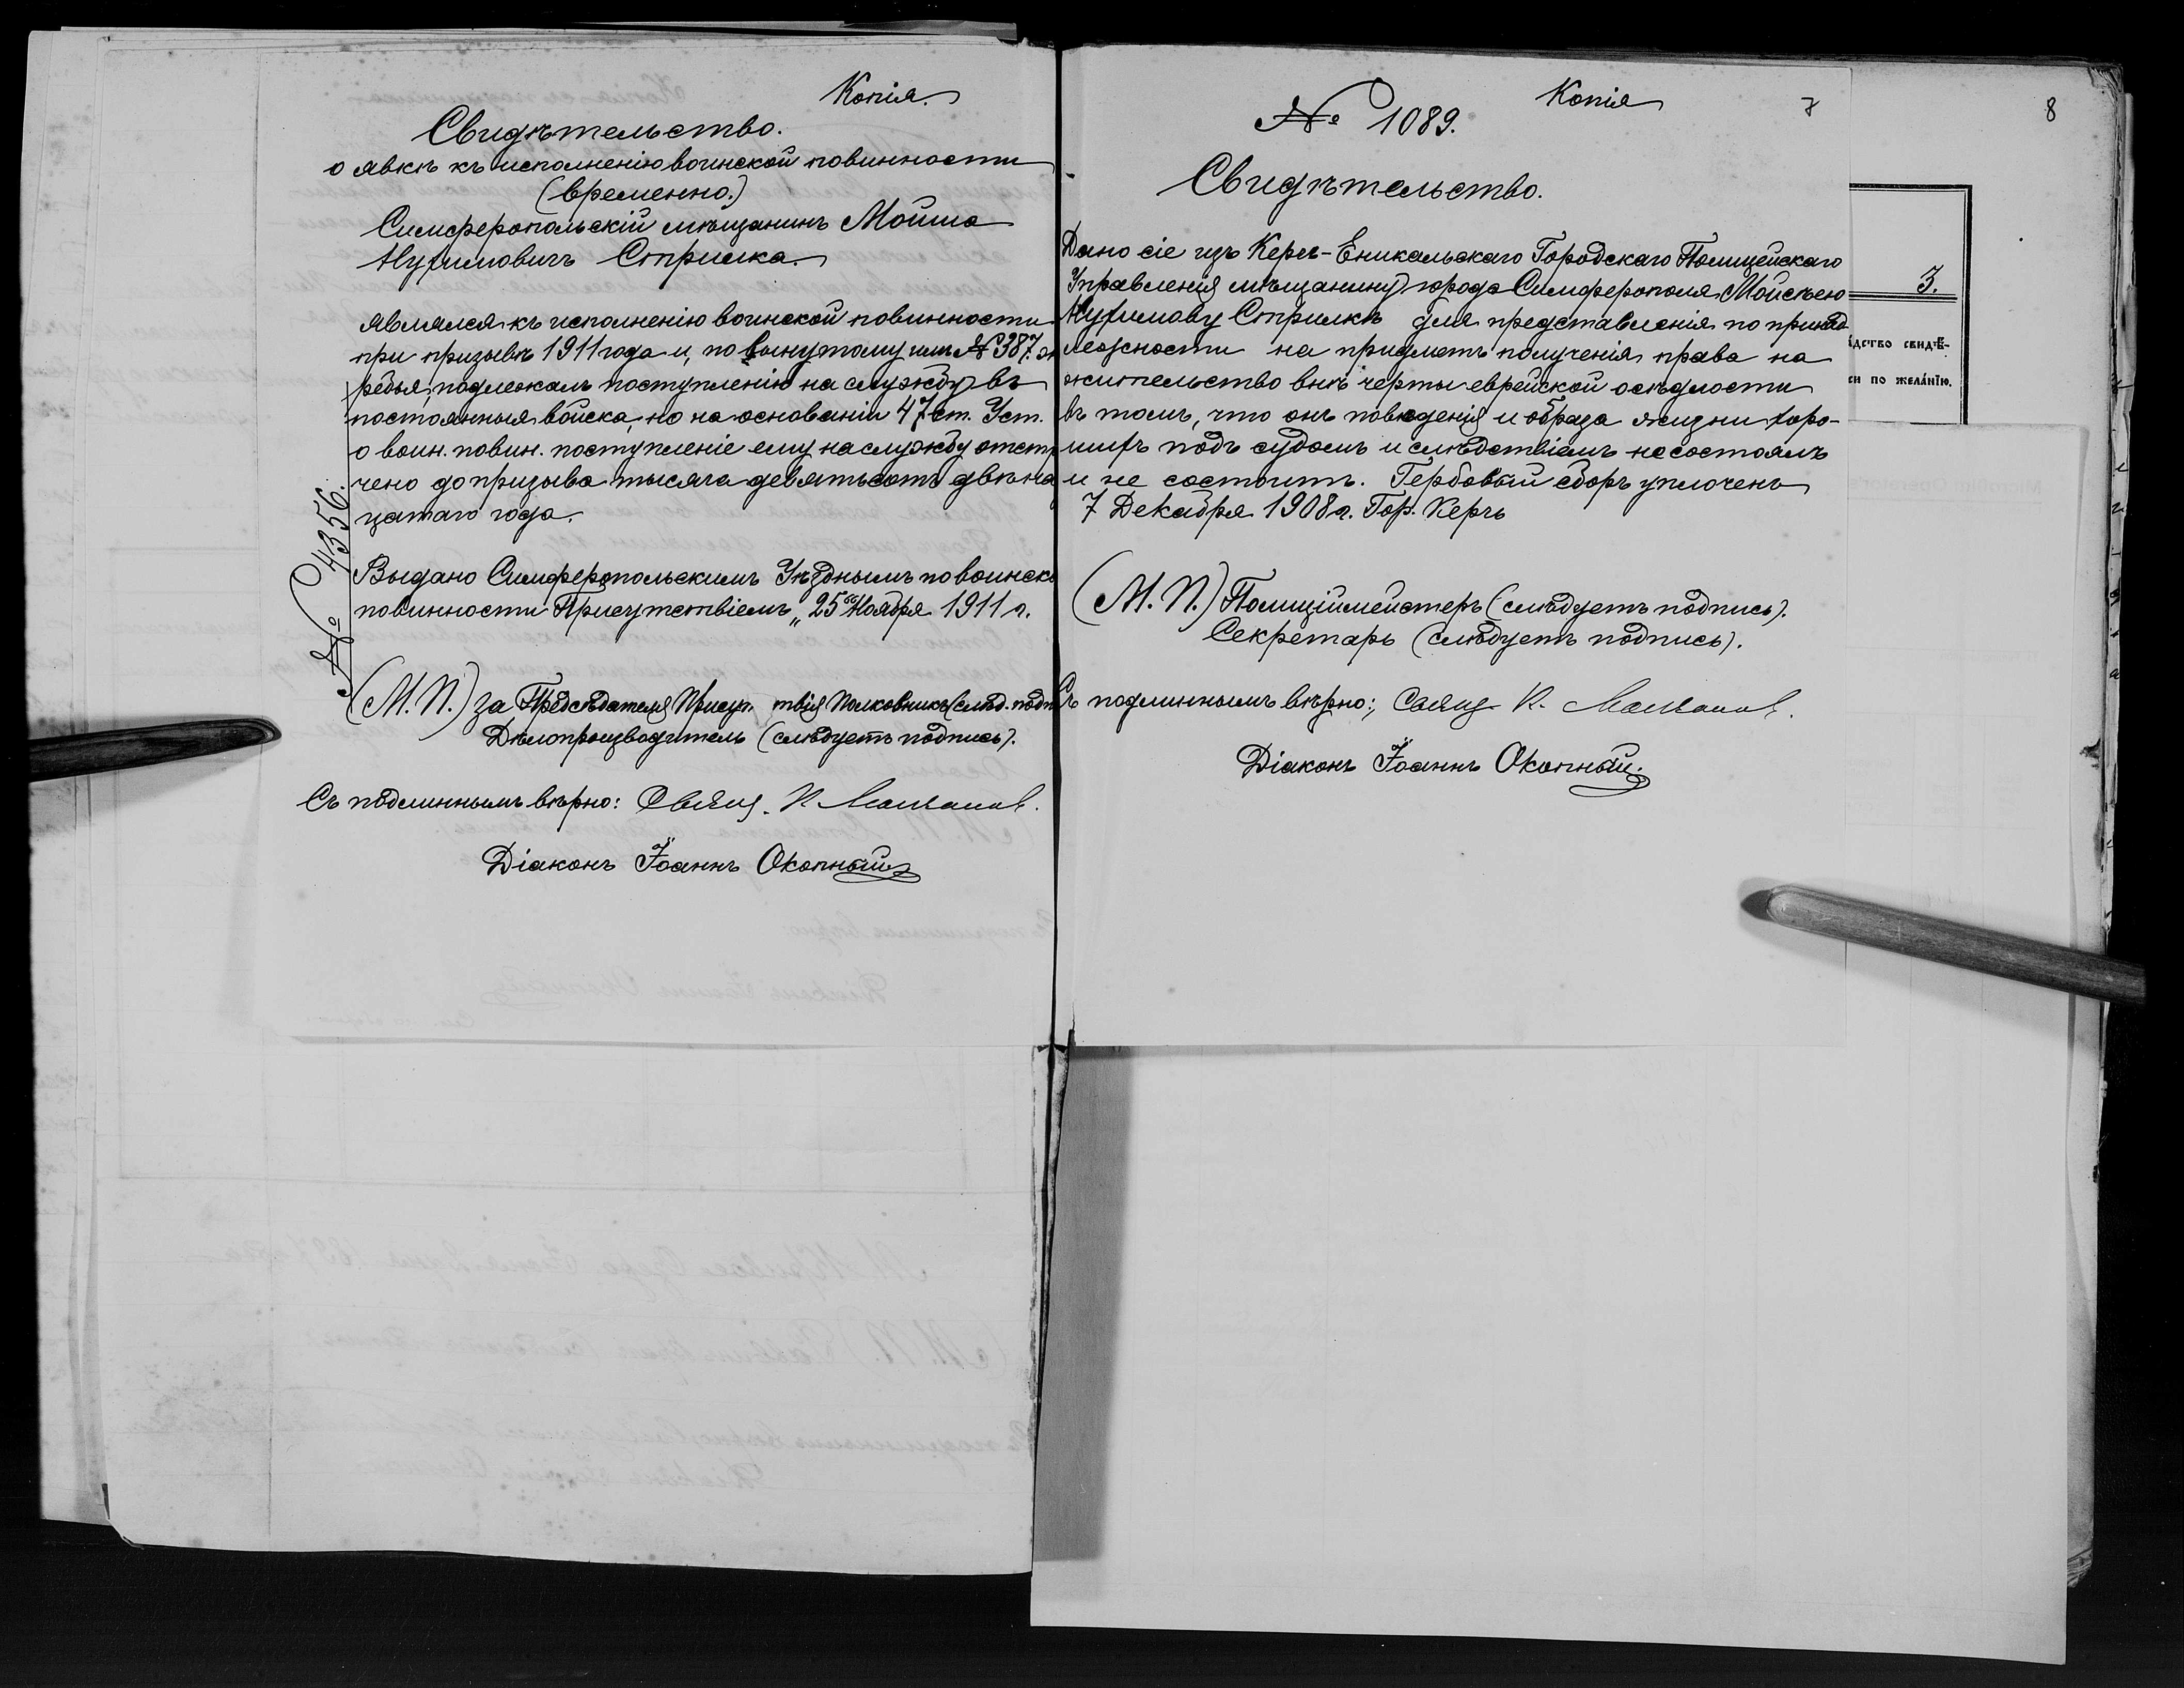 Копія.
Свидѣтельство.
о явкѣ къ исполненію воинской повинности
(временно.)
Симферопольскій мѣщанинъ Мойша
Нухимовичъ Стрилка.
являлся къ исполненію воинской повинности
при призывѣ 1911 года и, по вынутому имъ № 387. ж
ребья, подлежалъ поступленію на службу въ
постоянныя войска, но на основаніи 47 ст. Уст.
о воин. повин. поступленіе ему на службу отсро
чено до призыва тысяча девятьсотъ двѣна
цатаго года.
№ 4356.
Выдано Симферопольскимъ Уѣзднымъ по воинско
повинности Присутствіемъ „25" Ноября 1911 г.
(М. П.) за Предсѣдателя Присут. твія Полковникъ (слѣд. подп
Дѣлопроизводитель (слѣдуетъ подпись).
Съ подлиннымъ вѣрно: Свящ. К.
Діаконъ Іоаннъ Окопный
Копія
7
8
№ 1089.
Свидѣтельство.
Дано сіе изъ Керчь-Еникальскаго Городскаго Полицейскаго
Управленія мѣщанину города Симферополя Мойсѣею
Нухимову Стрилкѣ для представленія по принад
лежности на придметъ полученія права на
жительство внѣ черты еврейской осѣдлости
въ томъ, что онъ поведенія и образа жизни хоро-
шихъ подъ судомъ и слѣдствіемъ не состоялъ
и не состоитъ. Гербовый сборъ уплоченъ
7 Декабря 1908 г. Гор. Керчь
(М. П.) Полиціймейстеръ (слѣдуетъ подпись).
Секретарь (слѣдуетъ подпись).
Съ подлиннымъ вѣрно:, Свящ. К.
Діаконъ Іоаннъ Окопный.
3.
ДСТВО СВИДѢ-
СИ ПО ЖЕЛАНІЮ.